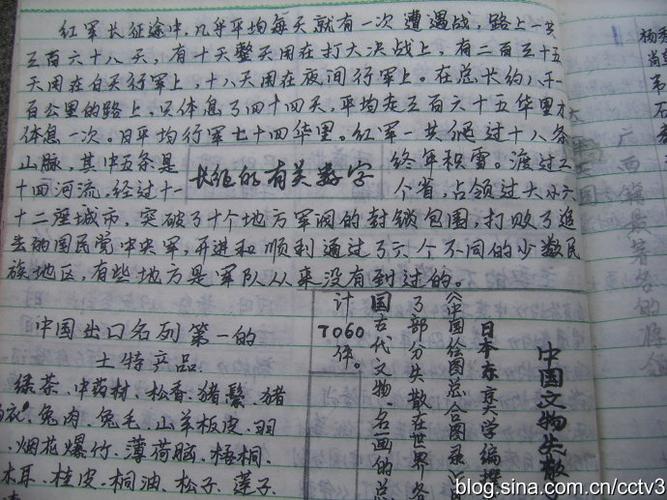 红军长征途中，几乎平均每天就有一次遭遇战，路上一共
三百六十八天，有十天整天用在打大决战上，有二百三十五
天用在白天行军上，十八天用在夜间行军上。在总长约八千
百公里的路上，只休息了四十四天，平均走三百六十五华里才
休息一次。日平均行军七十四华里。红军一共爬过十八条
山脉，其中五条是终年积雪。渡过二
十四河流，经过十一个省，占领过大小六
长征的有关数字
十二座城市，突破了十个地方军阀的封锁包围，打败了追
击的国民党中央军，开进和顺利通过了六个不同的少数民
族地区，有些地方是军队从来没有到过的。
中国出口名列第一的
土特产品
绿茶、中药材、松香、猪鬃、猪
衣、兔肉、兔毛、山羊板皮、羽
、烟花爆竹、薄荷脑、梧桐、
木耳、桂皮、桐油、松子、莲子、
中国文物失散
日本东京大学编撰
《中国绘图总合图录》
了部分失散在世界各
国古代文物、名画的总
计7060件。
广西镇最著名的
blog.sina.com.cn/cctv3